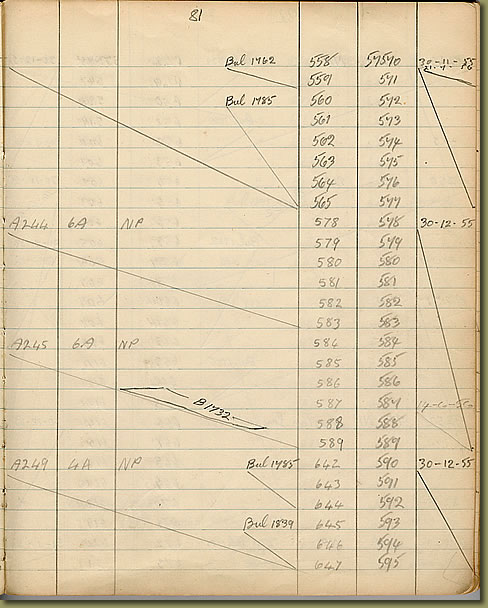 81
Bul 1762 558 57570 30-11-55
559 571
Bul 1785 560 572
561 573
562 574
563 575
564 576
565 577
A244 6A NP 578 578 30-12-55
579 579
580 580
581 581
582 582
583 583
A245 6A NP 584 584
585 585
586 586
B1732 587 587
588 588
589 589
A249 4A NP Bul 1785 642 590 30-12-55
643 591
644 592
Bul 1839 645 593
646 594
647 595